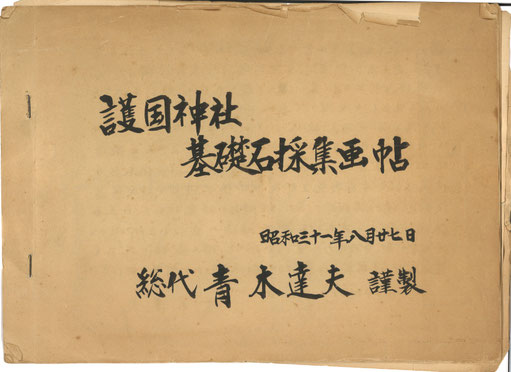 護国神社
基礎石採集画帖
昭和三十一年八月廿七日
総代 青木達夫 謹製